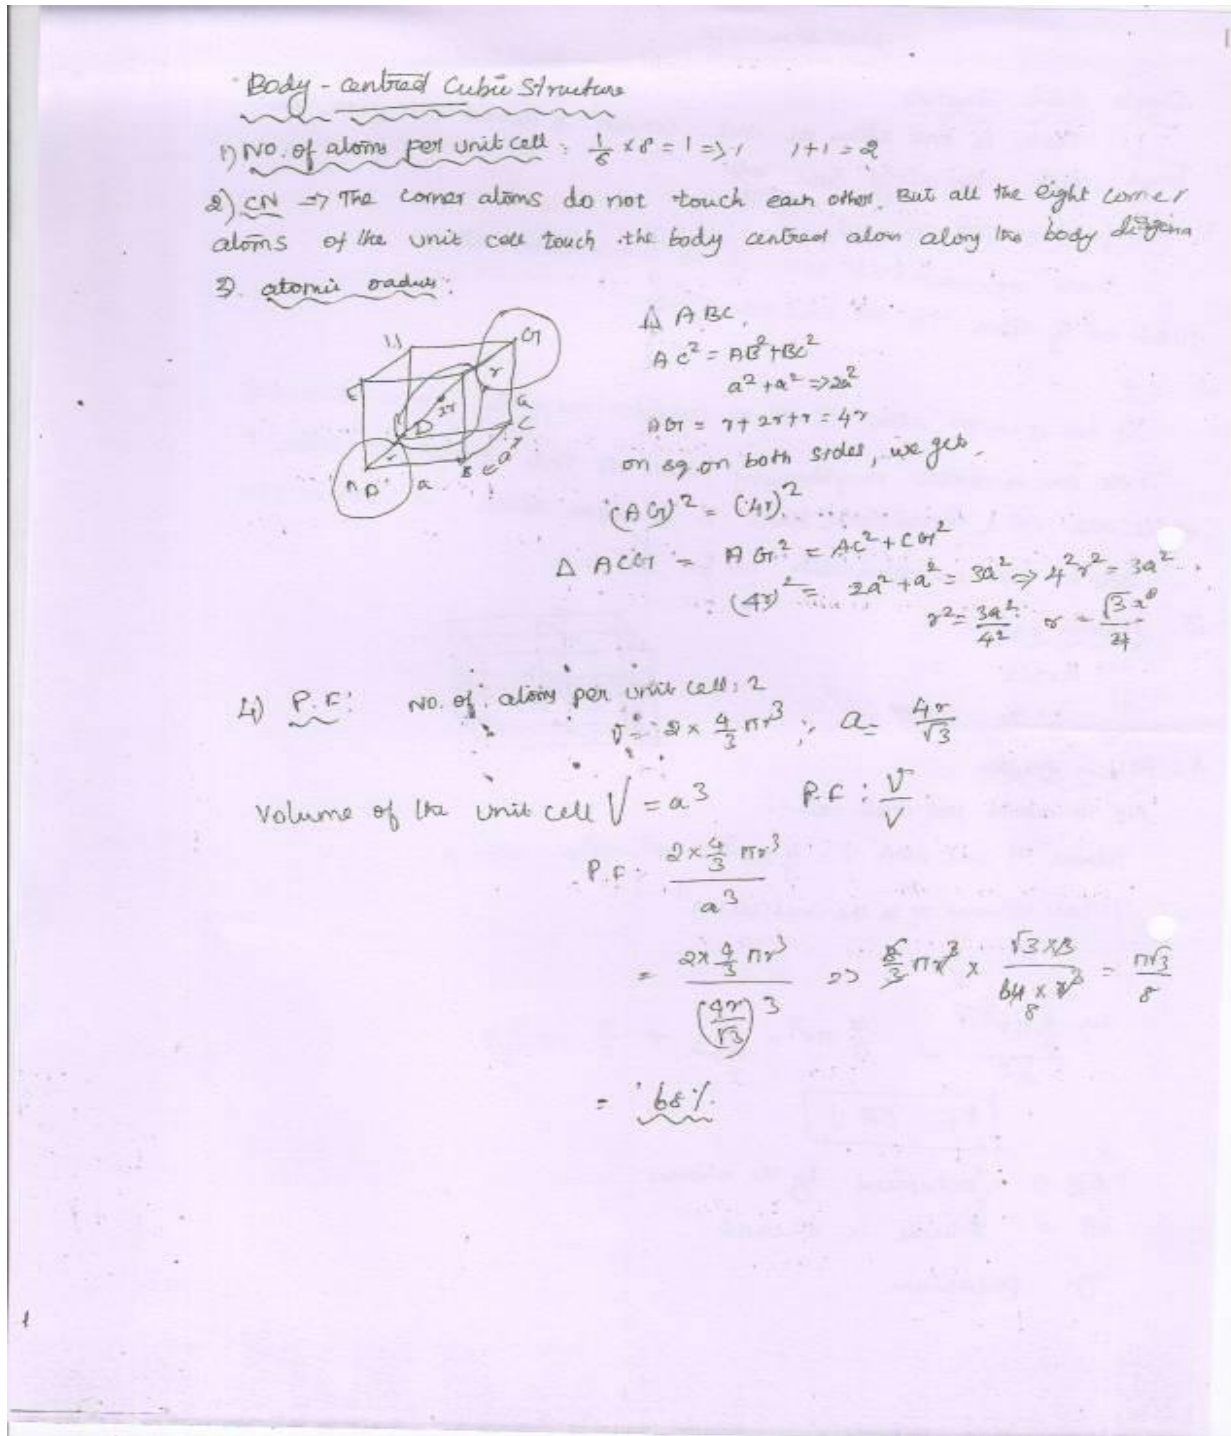 Body - centred Cubic Structure
1) NO. of atoms per unit cell : 1/8 × 8 = 1 => 1 1+1 = 2
2) CN => The corner atoms do not touch each other. But all the eight corner
atoms of the unit cell touch the body centred atom along the body
3) atomic radius:
Δ ABC,
AC² = AB² + BC²
a² + a² => 2a²
AG = r + 2r + r = 4r
on sq on both sides, we get,
(AG)² = (4r)²
Δ ACG = AG² = AC² + CG²
(4r)² = 2a² + a² = 3a² => 4²r² = 3a²
r² = 3a²/4²
G
r
E
2r
a
D
C
B
a
4) P.F: NO. of atoms per unit cell: 2
v = 2 × 4/3 πr³ ; a = 4r/√3
Volume of the unit cell V = a³ P.F : v/V
P.F : 2 × 4/3 πr³ / a³
= 2 × 4/3 πr³ / (4r/√3)³ => 8/3 πr³ × √3 × 3 / 64 × r³ 8 = π√3/8
= 68%